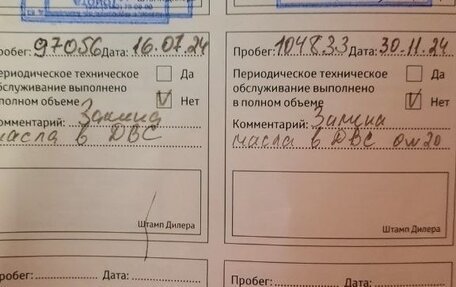 Пробег: 97056 Дата: 16.07.24
Периодическое техническое
обслуживание выполнено
в полном объеме
Да
Нет
Комментарий: Замена
масла в ДВС
Штамп Дилера
Пробег: Дата:
Пробег: 104833 Дата: 30.11.24
Периодическое техническое
обслуживание выполнено
в полном объеме
Да
Нет
Комментарий: Замена
масла в ДВС 0w20
Штамп Дилера
Пробег: Дата: